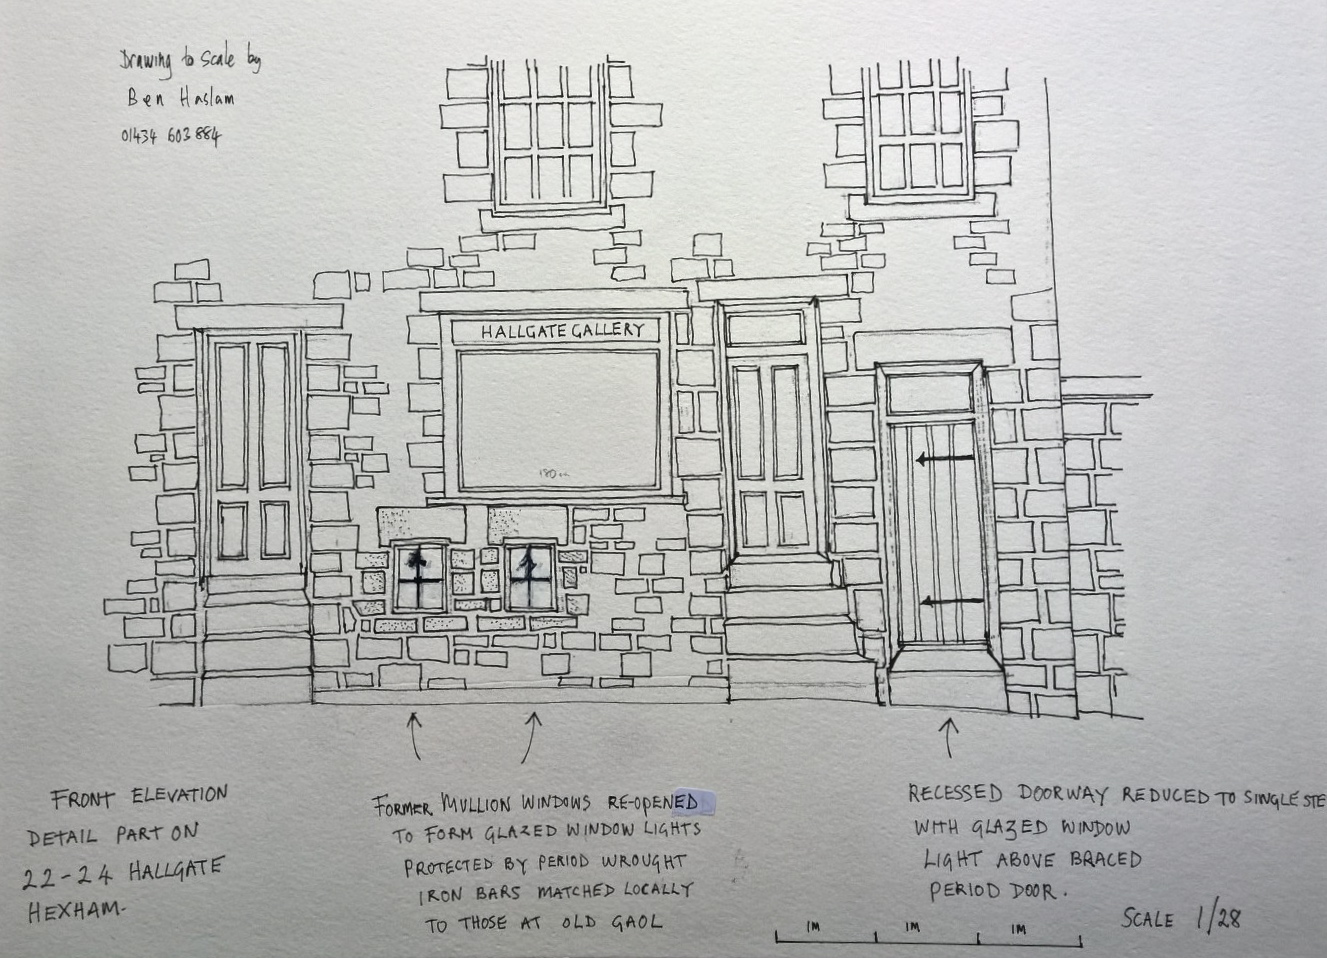 Drawing to Scale by
Ben Haslam
01434 603884
HALLGATE GALLERY
FRONT ELEVATION
DETAIL PART ON
22-24 HALLGATE
HEXHAM.
FORMER MULLION WINDOWS RE-OPENED
TO FORM GLAZED WINDOW LIGHTS
PROTECTED BY PERIOD WROUGHT
IRON BARS MATCHED LOCALLY
TO THOSE AT OLD GAOL
RECESSED DOORWAY REDUCED TO SINGLE STE
WITH GLAZED WINDOW
LIGHT ABOVE BRACED
PERIOD DOOR.
1M 1M 1M
SCALE 1/28